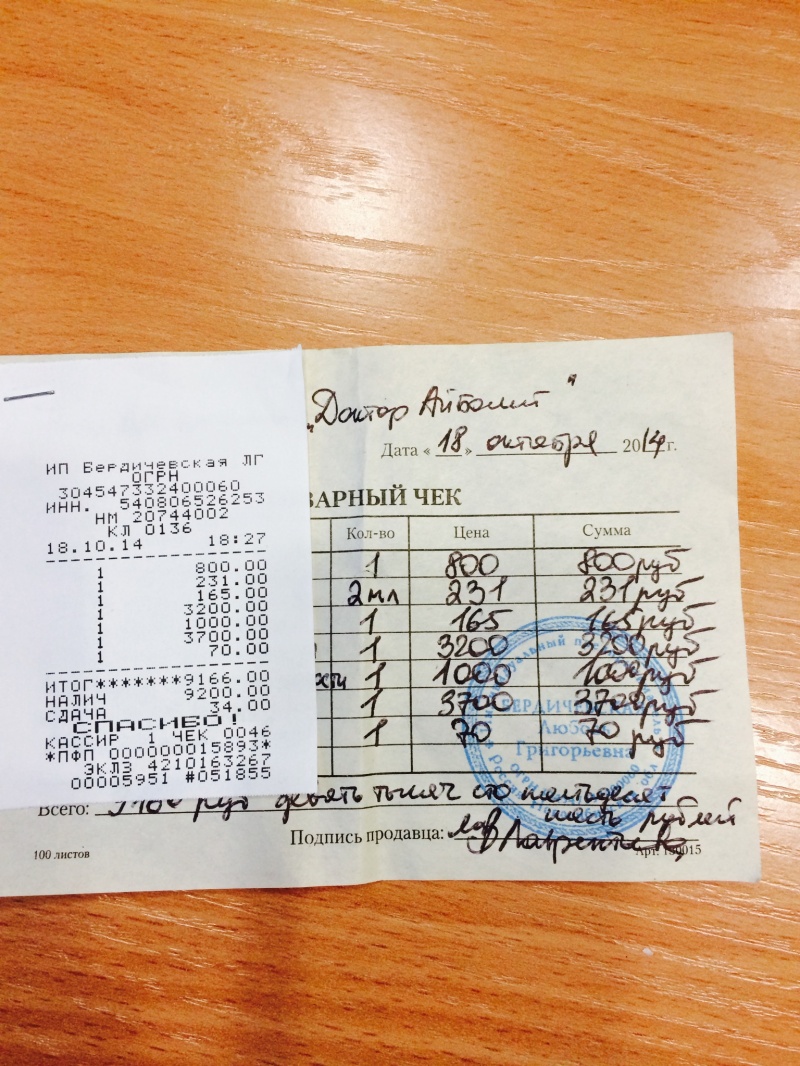 „Доктор Айболит"
Дата «18» октября 2014 г.
ВАРНЫЙ ЧЕК
Кол-во Цена Сумма
1 800 800 руб
2 мл 231 231 руб
1 165 165 руб
1 3200 3200 руб
1 1000 1000 руб
1 3700 3700 руб
1 70 70 руб
Всего: руб девять тысяч сто
шесть рублей
Подпись продавца:
100 листов
ИП Бердичевская ЛГ
ОГРН
304547332400060
ИНН. 540806526253
НМ 20744002
КЛ 0136
18.10.14 18:27
1 800.00
1 231.00
1 165.00
1 3200.00
1 1000.00
1 3700.00
1 70.00
ИТОГ*******9166.00
НАЛИЧ 9200.00
СДАЧА 34.00
СПАСИБО!
КАССИР 1 ЧЕК 0046
*ПФП 000000015893*
ЭКЛЗ 4210163267
00005951 #051855
Любовь
Григорьевна